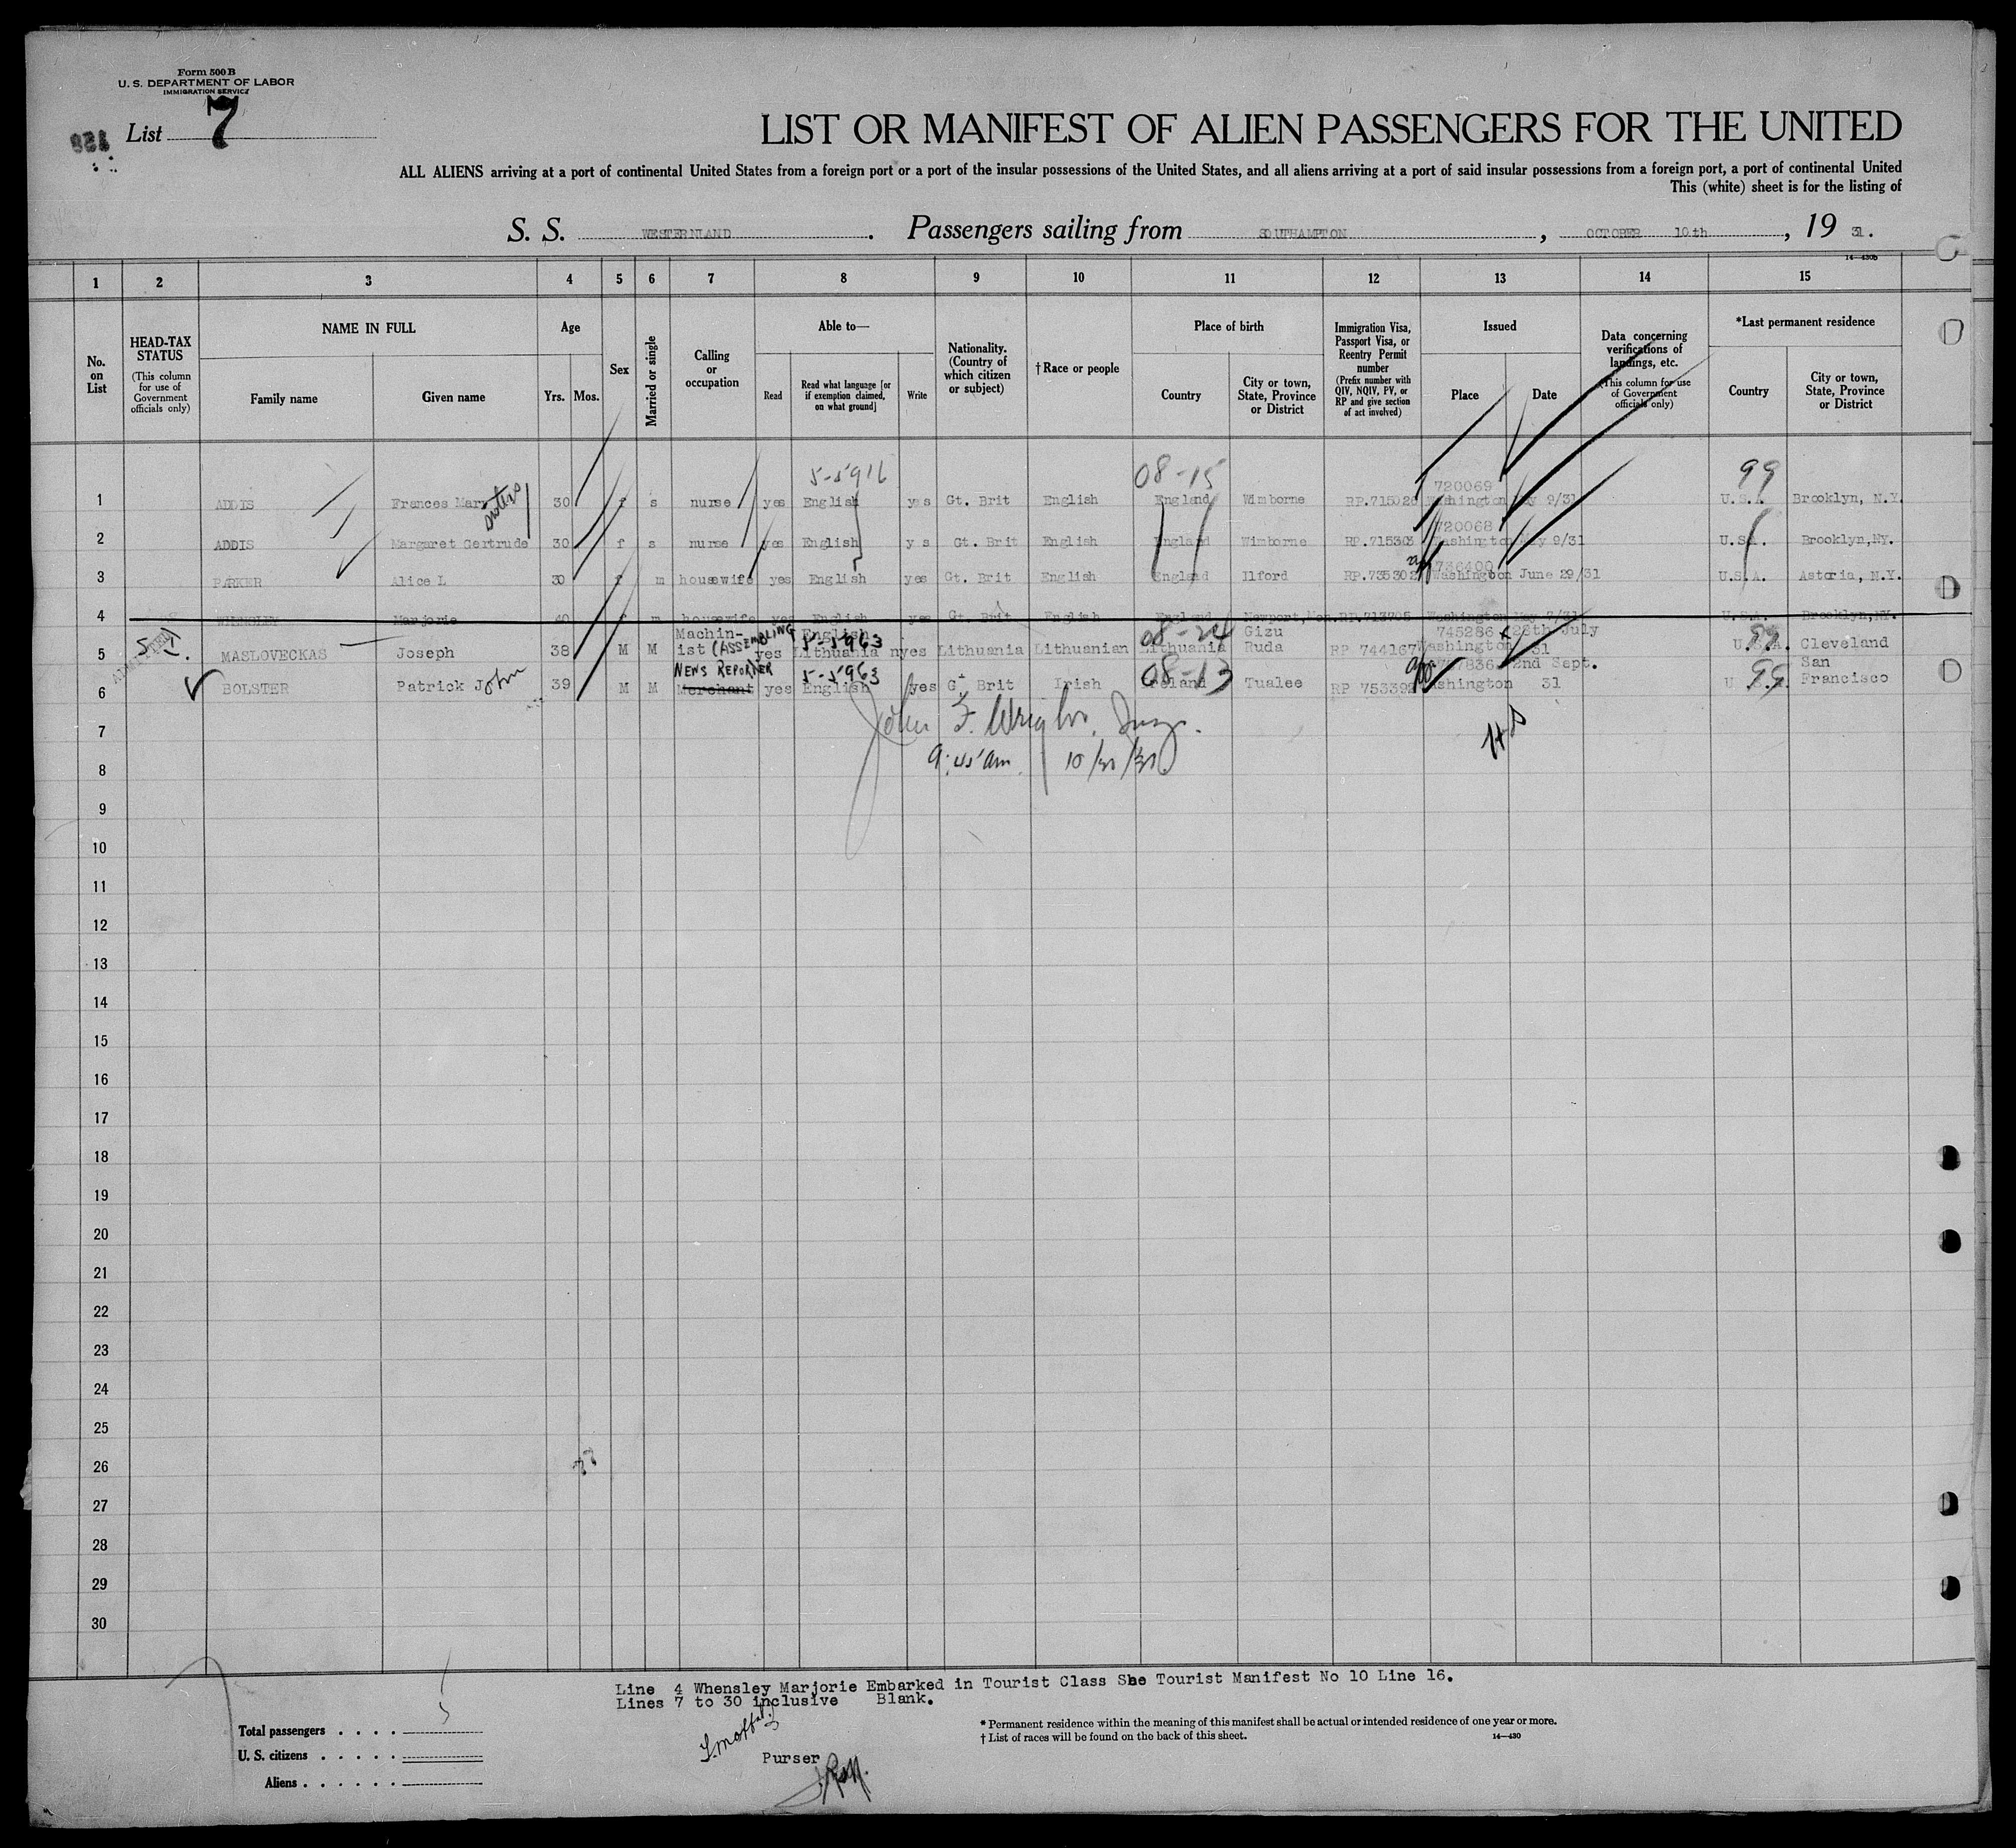 Form 500 B
U. S. DEPARTMENT OF LABOR
IMMIGRATION SERVICE
List 7
LIST OR MANIFEST OF ALIEN PASSENGERS FOR THE UNITED
ALL ALIENS arriving at a port of continental United States from a foreign port or a port of the insular possessions of the United States, and all aliens arriving at a port of said insular possessions from a foreign port, a port of continental United
This (white) sheet is for the listing of
S. S. WESTERNLAND. Passengers sailing from SOUTHAMPTON, OCTOBER 10th, 19 31.
1 2 3 4 5 6 7 8 9 10 11 12 13 14 15
No. on List
HEAD-TAX STATUS (This column for use of Government officials only)
NAME IN FULL
Family name Given name
Age
Yrs. Mos.
Sex
Married or single
Calling or occupation
Able to—
Read Read what language [or if exemption claimed, on what ground] Write
Nationality. (Country of which citizen or subject)
† Race or people
Place of birth
Country City or town, State, Province or District
Immigration Visa, Passport Visa, or Reentry Permit number (Prefix number with QIV, NQIV, PV, or RP and give section of act involved)
Issued
Place Date
Data concerning verifications of landings, etc. (This column for use of Government officials only)
*Last permanent residence
Country City or town, State, Province or District
5-5916 08-15 720069 99
1 ADDIS Frances Mary sisters 30 f s nurse yes English yes Gt. Brit English England Wimborne Washington 9/31 U.S.A. Brooklyn, N.Y.
720068
2 ADDIS Margaret Gertrude 30 f s nurse yes English y s Gt. Brit English England Wimborne Washington 9/31 U.S.A. Brooklyn, NY.
736400
3 PARKER Alice L 30 f m housewife yes English yes Gt. Brit English England Ilford RP.735302 Washington June 29/31 U.S.A. Astoria, N.Y.
4 WHENSLEY Marjorie 40 f m housewife yes English yes Gt. Brit English England Newport, Mon. RP.713705 Washington May 7/31 U.S.A. Brooklyn, NY.
Machin- (ASSEMBLING English 5-5963 08-24 Gizu 745286 28th July 99
5 MASLOVECKAS Joseph 38 M M ist yes Lithuanian yes Lithuania Lithuanian Lithuania Ruda RP 744167 Washington 31 U.S.A. Cleveland
NEWS REPORTER 5-5963 08-13 2nd Sept. 99 San
6 BOLSTER Patrick John 39 M M Merchant yes English yes Gt Brit Irish Ireland Tualee RP 753392 Washington 31 U.S.A. Francisco
7
9:45 am 10/
8
9
10
11
12
13
14
15
16
17
18
19
20
21
22
23
24
25
26
27
28
29
30
Line 4 Whensley Marjorie Embarked in Tourist Class See Tourist Manifest No 10 Line 16.
Lines 7 to 30 inclusive Blank.
Total passengers . . . . 5
U. S. citizens . . . . .
Aliens . . . . . .
Purser
* Permanent residence within the meaning of this manifest shall be actual or intended residence of one year or more.
† List of races will be found on the back of this sheet. 14—430